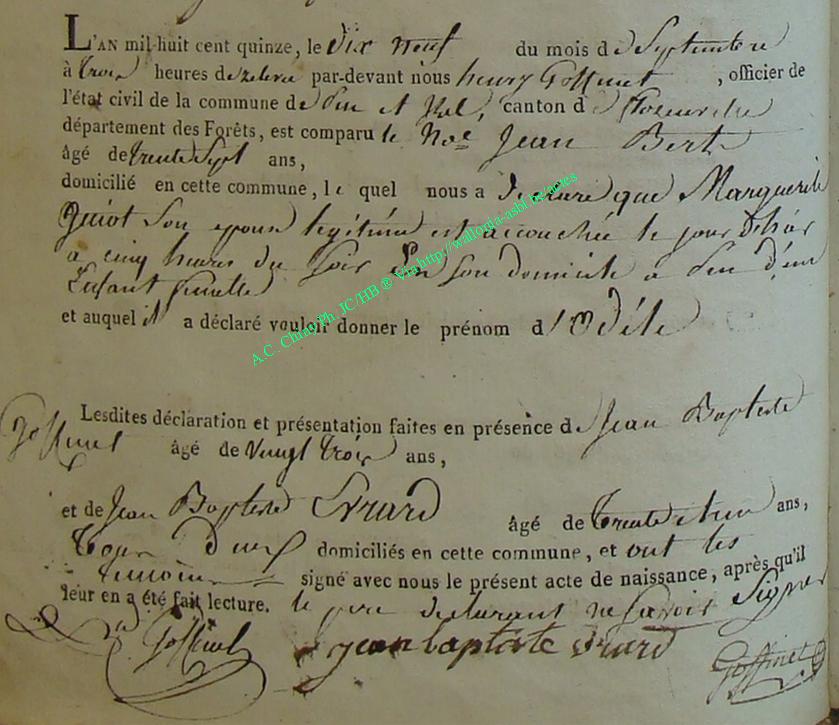 L'AN mil huit cent quinze, le dix neuf du mois de Septembre
à trois heures de relevée par-devant nous henry Goffinet, officier de
l'état civil de la commune de pin et izel, canton d
département des Forêts, est comparu le Jean Bert
âgé de trente Sept ans,
domicilié en cette commune, le quel nous a declaré que Marguerite
Guiot Son epouse legitime est accouchée le jour d'hier
a cinq heures du Soir En Son domicile a pin d'un
Enfant femelle
et auquel il a déclaré vouloir donner le prénom d'Odèle
A.C. Chiny Ph. JC/HB ® Via http://wallonia-asbl.be/actes
Lesdites déclaration et présentation faites en présence de Jean Baptiste
Goffinet âgé de vingt trois ans,
et de Jean Baptiste Evrard âgé de trente et un ans,
tous deux domiciliés en cette commune, et ont les
temoins signé avec nous le présent acte de naissance, après qu'il
leur en a été fait lecture. le pere declarant ne savoir Signer
Goffinet jean baptiste evrard Goffinet